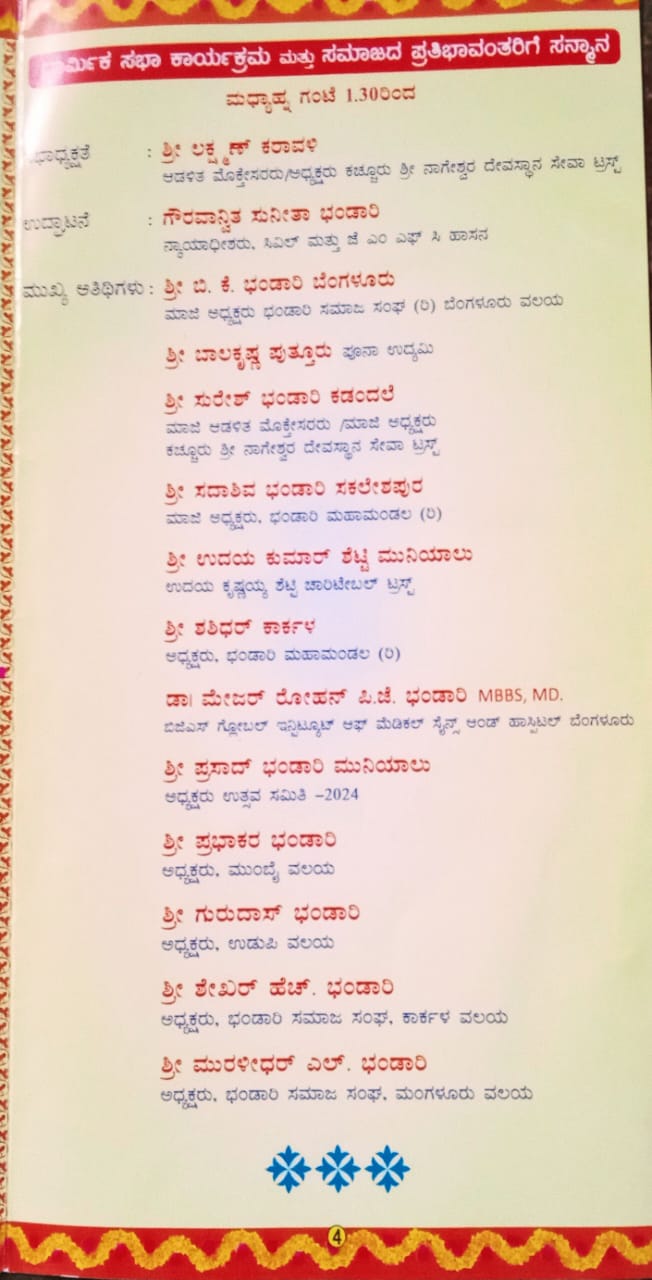 ಧಾರ್ಮಿಕ ಸಭಾ ಕಾರ್ಯಕ್ರಮ ಮತ್ತು ಸಮಾಜದ ಪ್ರತಿಭಾವಂತರಿಗೆ ಸನ್ಮಾನ
ಮಧ್ಯಾಹ್ನ ಗಂಟೆ 1.30ರಿಂದ
ಸಭಾಧ್ಯಕ್ಷತೆ : ಶ್ರೀ ಲಕ್ಷ್ಮಣ್ ಕರಾವಳಿ
ಆಡಳಿತ ಮೊಕ್ತೇಸರರು/ಅಧ್ಯಕ್ಷರು ಕಚ್ಚೂರು ಶ್ರೀ ನಾಗೇಶ್ವರ ದೇವಸ್ಥಾನ ಸೇವಾ ಟ್ರಸ್ಟ್
ಉದ್ಘಾಟನೆ : ಗೌರವಾನ್ವಿತ ಸುನೀತಾ ಭಂಡಾರಿ
ನ್ಯಾಯಾಧೀಶರು, ಸಿವಿಲ್ ಮತ್ತು ಜೆ ಎಂ ಎಫ್ ಸಿ ಹಾಸನ
ಮುಖ್ಯ ಅತಿಥಿಗಳು : ಶ್ರೀ ಬಿ. ಕೆ. ಭಂಡಾರಿ ಬೆಂಗಳೂರು
ಮಾಜಿ ಅಧ್ಯಕ್ಷರು ಭಂಡಾರಿ ಸಮಾಜ ಸಂಘ (ರಿ) ಬೆಂಗಳೂರು ವಲಯ
ಶ್ರೀ ಬಾಲಕೃಷ್ಣ ಪುತ್ತೂರು ಪೂನಾ ಉದ್ಯಮಿ
ಶ್ರೀ ಸುರೇಶ್ ಭಂಡಾರಿ ಕಡಂದಲೆ
ಮಾಜಿ ಆಡಳಿತ ಮೊಕ್ತೇಸರರು /ಮಾಜಿ ಅಧ್ಯಕ್ಷರು
ಕಚ್ಚೂರು ಶ್ರೀ ನಾಗೇಶ್ವರ ದೇವಸ್ಥಾನ ಸೇವಾ ಟ್ರಸ್ಟ್
ಶ್ರೀ ಸದಾಶಿವ ಭಂಡಾರಿ ಸಕಲೇಶಪುರ
ಮಾಜಿ ಅಧ್ಯಕ್ಷರು, ಭಂಡಾರಿ ಮಹಾಮಂಡಲ (ರಿ)
ಶ್ರೀ ಉದಯ ಕುಮಾರ್ ಶೆಟ್ಟಿ ಮುನಿಯಾಲು
ಉದಯ ಕೃಷ್ಣಯ್ಯ ಶೆಟ್ಟಿ ಚಾರಿಟೇಬಲ್ ಟ್ರಸ್ಟ್
ಶ್ರೀ ಶಶಿಧರ್ ಕಾರ್ಕಳ
ಅಧ್ಯಕ್ಷರು, ಭಂಡಾರಿ ಮಹಾಮಂಡಲ (ರಿ)
ಡಾ। ಮೇಜರ್ ರೋಹನ್ ಪಿ.ಜೆ. ಭಂಡಾರಿ MBBS, MD.
ಬಿಜಿಎಸ್ ಗ್ಲೋಬಲ್ ಇನ್ಸಿಟ್ಯೂಟ್ ಆಫ್ ಮೆಡಿಕಲ್ ಸೈನ್ಸ್ ಆಂಡ್ ಹಾಸ್ಪಿಟಲ್ ಬೆಂಗಳೂರು
ಶ್ರೀ ಪ್ರಸಾದ್ ಭಂಡಾರಿ ಮುನಿಯಾಲು
ಅಧ್ಯಕ್ಷರು ಉತ್ಸವ ಸಮಿತಿ –2024
ಶ್ರೀ ಪ್ರಭಾಕರ ಭಂಡಾರಿ
ಅಧ್ಯಕ್ಷರು, ಮುಂಬೈ ವಲಯ
ಶ್ರೀ ಗುರುದಾಸ್ ಭಂಡಾರಿ
ಅಧ್ಯಕ್ಷರು, ಉಡುಪಿ ವಲಯ
ಶ್ರೀ ಶೇಖರ್ ಹೆಚ್. ಭಂಡಾರಿ
ಅಧ್ಯಕ್ಷರು, ಭಂಡಾರಿ ಸಮಾಜ ಸಂಘ, ಕಾರ್ಕಳ ವಲಯ
ಶ್ರೀ ಮುರಳೀಧರ್ ಎಲ್. ಭಂಡಾರಿ
ಅಧ್ಯಕ್ಷರು, ಭಂಡಾರಿ ಸಮಾಜ ಸಂಘ, ಮಂಗಳೂರು ವಲಯ
4